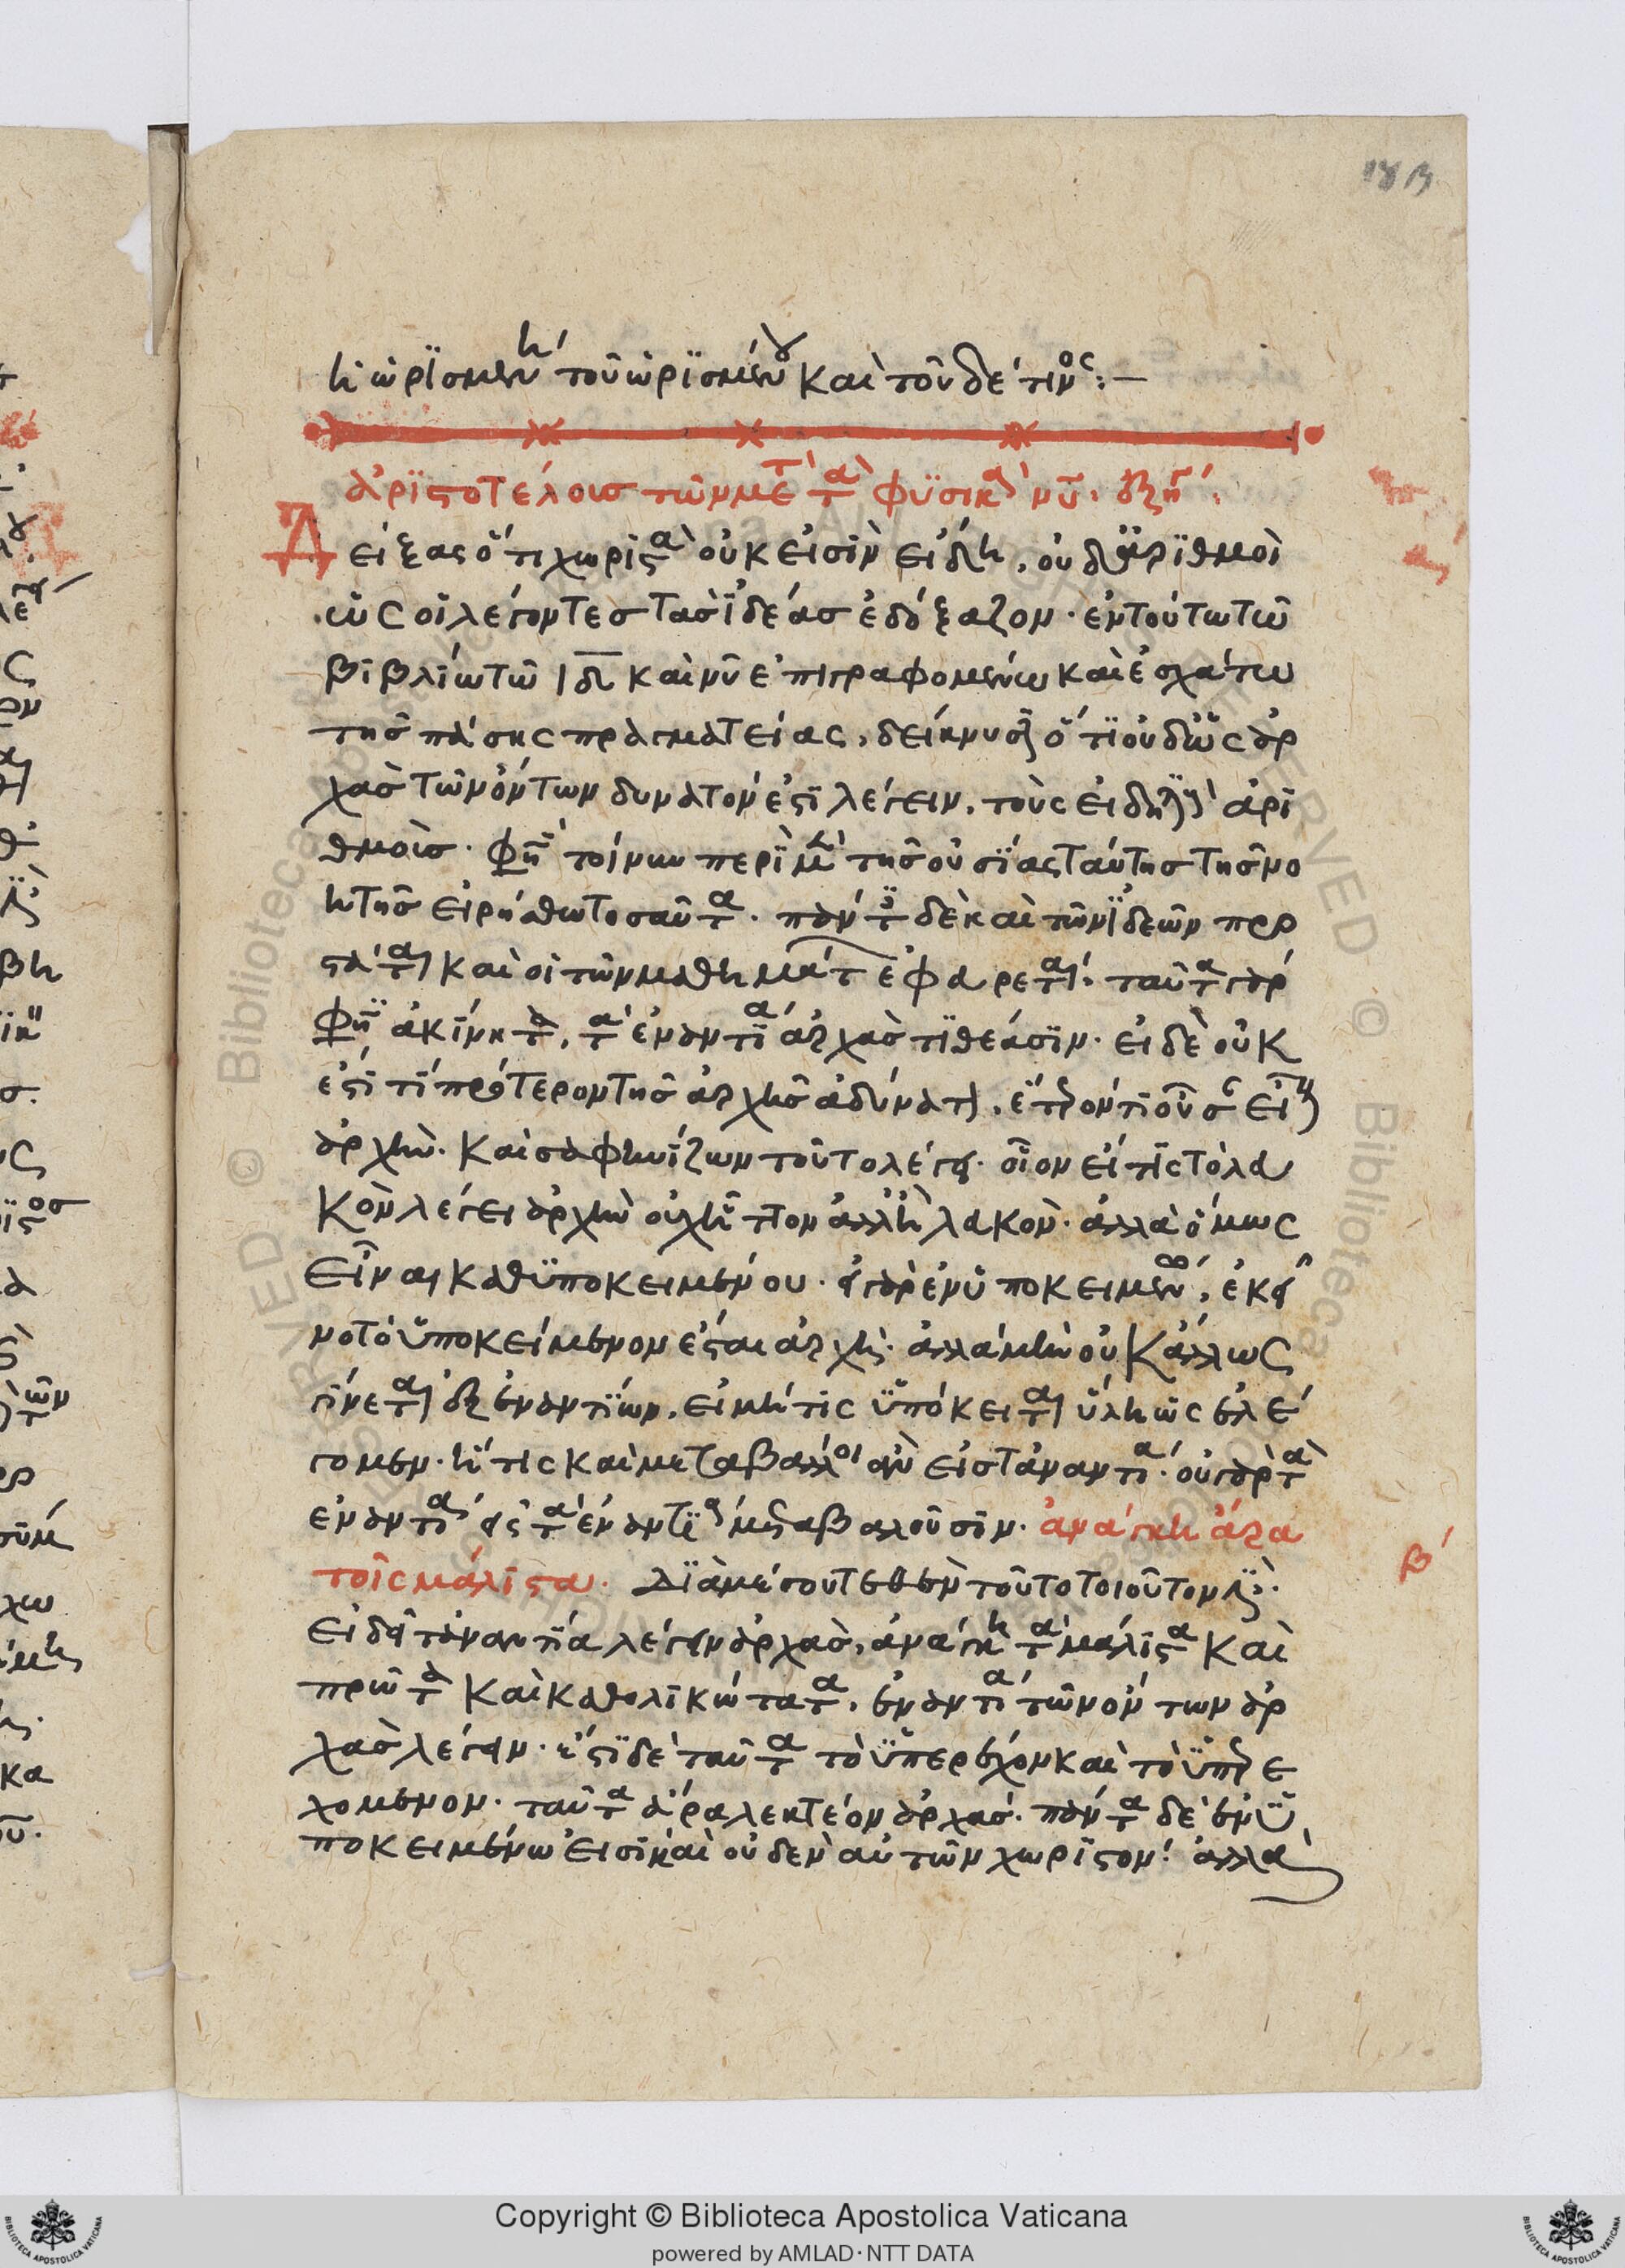 ἡ ὡρισμένη τοῦ ὡρισμένου καὶ τοῦδέ τινος:—
ἀριστοτέλους τῶν μετὰ τὰ φυσικὰ νῦ. ἐξήγ.
Δείξας ὅτι χωριστὰ οὐκ εἰσὶν εἴδη, οὐδ' ἀριθμοὶ
ὡς οἱ λέγοντες τὰς ἰδέας ἐδόξαζον· ἐν τούτω τῶ
βιβλίω τῶ ιδ καὶ νῦ ἐπιγραφομένω καὶ ἐσχάτω
τῆς πάσης πραγματείας, δείκνυσιν ὅτι οὐδ' ὡς ἀρ
χὰς τῶν ὄντων δυνατόν ἐστι λέγειν, τοὺς εἰδητικοὺς ἀρι
θμούς· φησὶ τοίνυν περὶ μὲν τῆς οὐσίας ταύτης τῆς νο
ητῆς εἰρήσθω τοσαῦτα· πάντες δὲ καὶ τῶν ἰδεῶν προ
στάται καὶ οἱ τῶν μαθημάτ ταῦτα γάρ
φησιν ἀκίνητα, τὰ ἐναντία ἀρχὰς τιθέασιν· εἰ δὲ οὐκ
ἔστι τί πρότερον τῆς ἀρχῆς ἀδύνατον, ἕτερόν τι οὖσαν εἶναι
ἀρχήν· καὶ σαφηνίζων τοῦτο λέγει· οἷον εἴ τις τὸ λευ
κὸν λέγει ἀρχὴν οὐχ ᾗ ἕτερον ἀλλ' ᾗ λευκόν· ἀλλὰ ὅμως
εἶναι καθ' ὑποκειμένου· εἰ γὰρ ἐν ὑποκειμένω, ἐκεῖ
νο τὸ ὑποκείμενον ἔσται ἀρχή· ἀλλὰ μὴν οὐκ ἄλλως
γίνεται ἐξ ἐναντίων, εἰ μή τις ὑπόκειται ὕλη ὡς ἐλέ
γομεν· ἥτις καὶ μεταβάλλοι ἂν εἰς τἀναντία· οὐ γὰρ τὰ
ἐναντία εἰς τὰ ἐναντία μεταβαλοῦσιν· ἀνάγκη ἄρα
τοῖς μάλιστα. Διὰ μέσου τεθὲν τοῦτο τοιοῦτόν ἐστιν·
εἰ δεῖ τἀναντία λέγειν ἀρχάς, ἀνάγκη τὰ μάλιστα καὶ
πρῶτα καὶ καθολικώτατα, ἐναντία τῶν ὄντων ἀρ
χὰς λέγειν· ἔστι δὲ ταῦτα τὸ ὑπερέχον καὶ τὸ ὑπερε
χόμενον· ταῦτα ἄρα λεκτέον ἀρχάς· πάντα δὲ ἐν ὑ
ποκειμένω εἰσὶ καὶ οὐδὲν αὐτῶν χωριστόν· ἀλλὰ
β
Copyright © Biblioteca Apostolica Vaticana
powered by AMLAD·NTT DATA